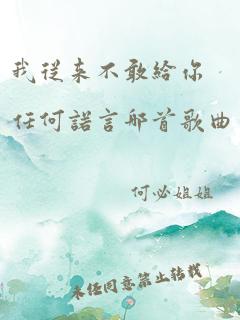 我從来不敢給你
任何諾言那首歌曲
何必姐姐
未經同意禁止转载